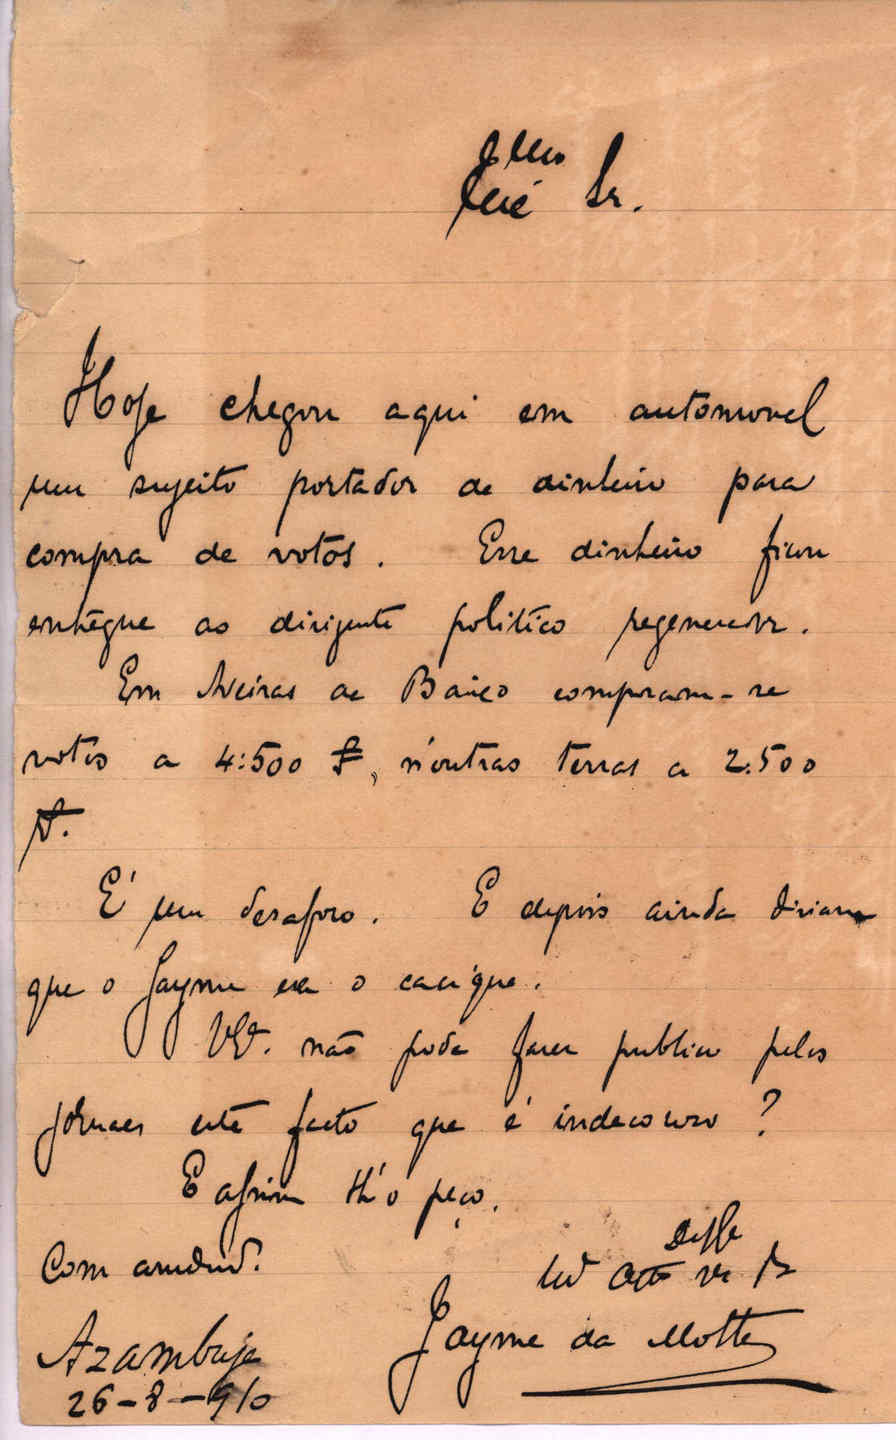 Illmo
Exmo Sr.
Hoje chegou aqui em automovel
um sujeito portador de dinheiro para
compra de votos. Esse dinheiro ficou
entregue ao dirigente politico regenerador.
Em Aveiras de Baixo compram-se
votos a 4:500 $, n'outras terras a 2.500
$.
É um desaforo. E depois ainda diziam
que o Jayme era o cacique.
V. Ex.ª não pode fazer publico pelos
jornaes este facto que é indecoroso?
E assim lh'o peço.
Com
Azambuja
26-8-910
Jayme da Motta